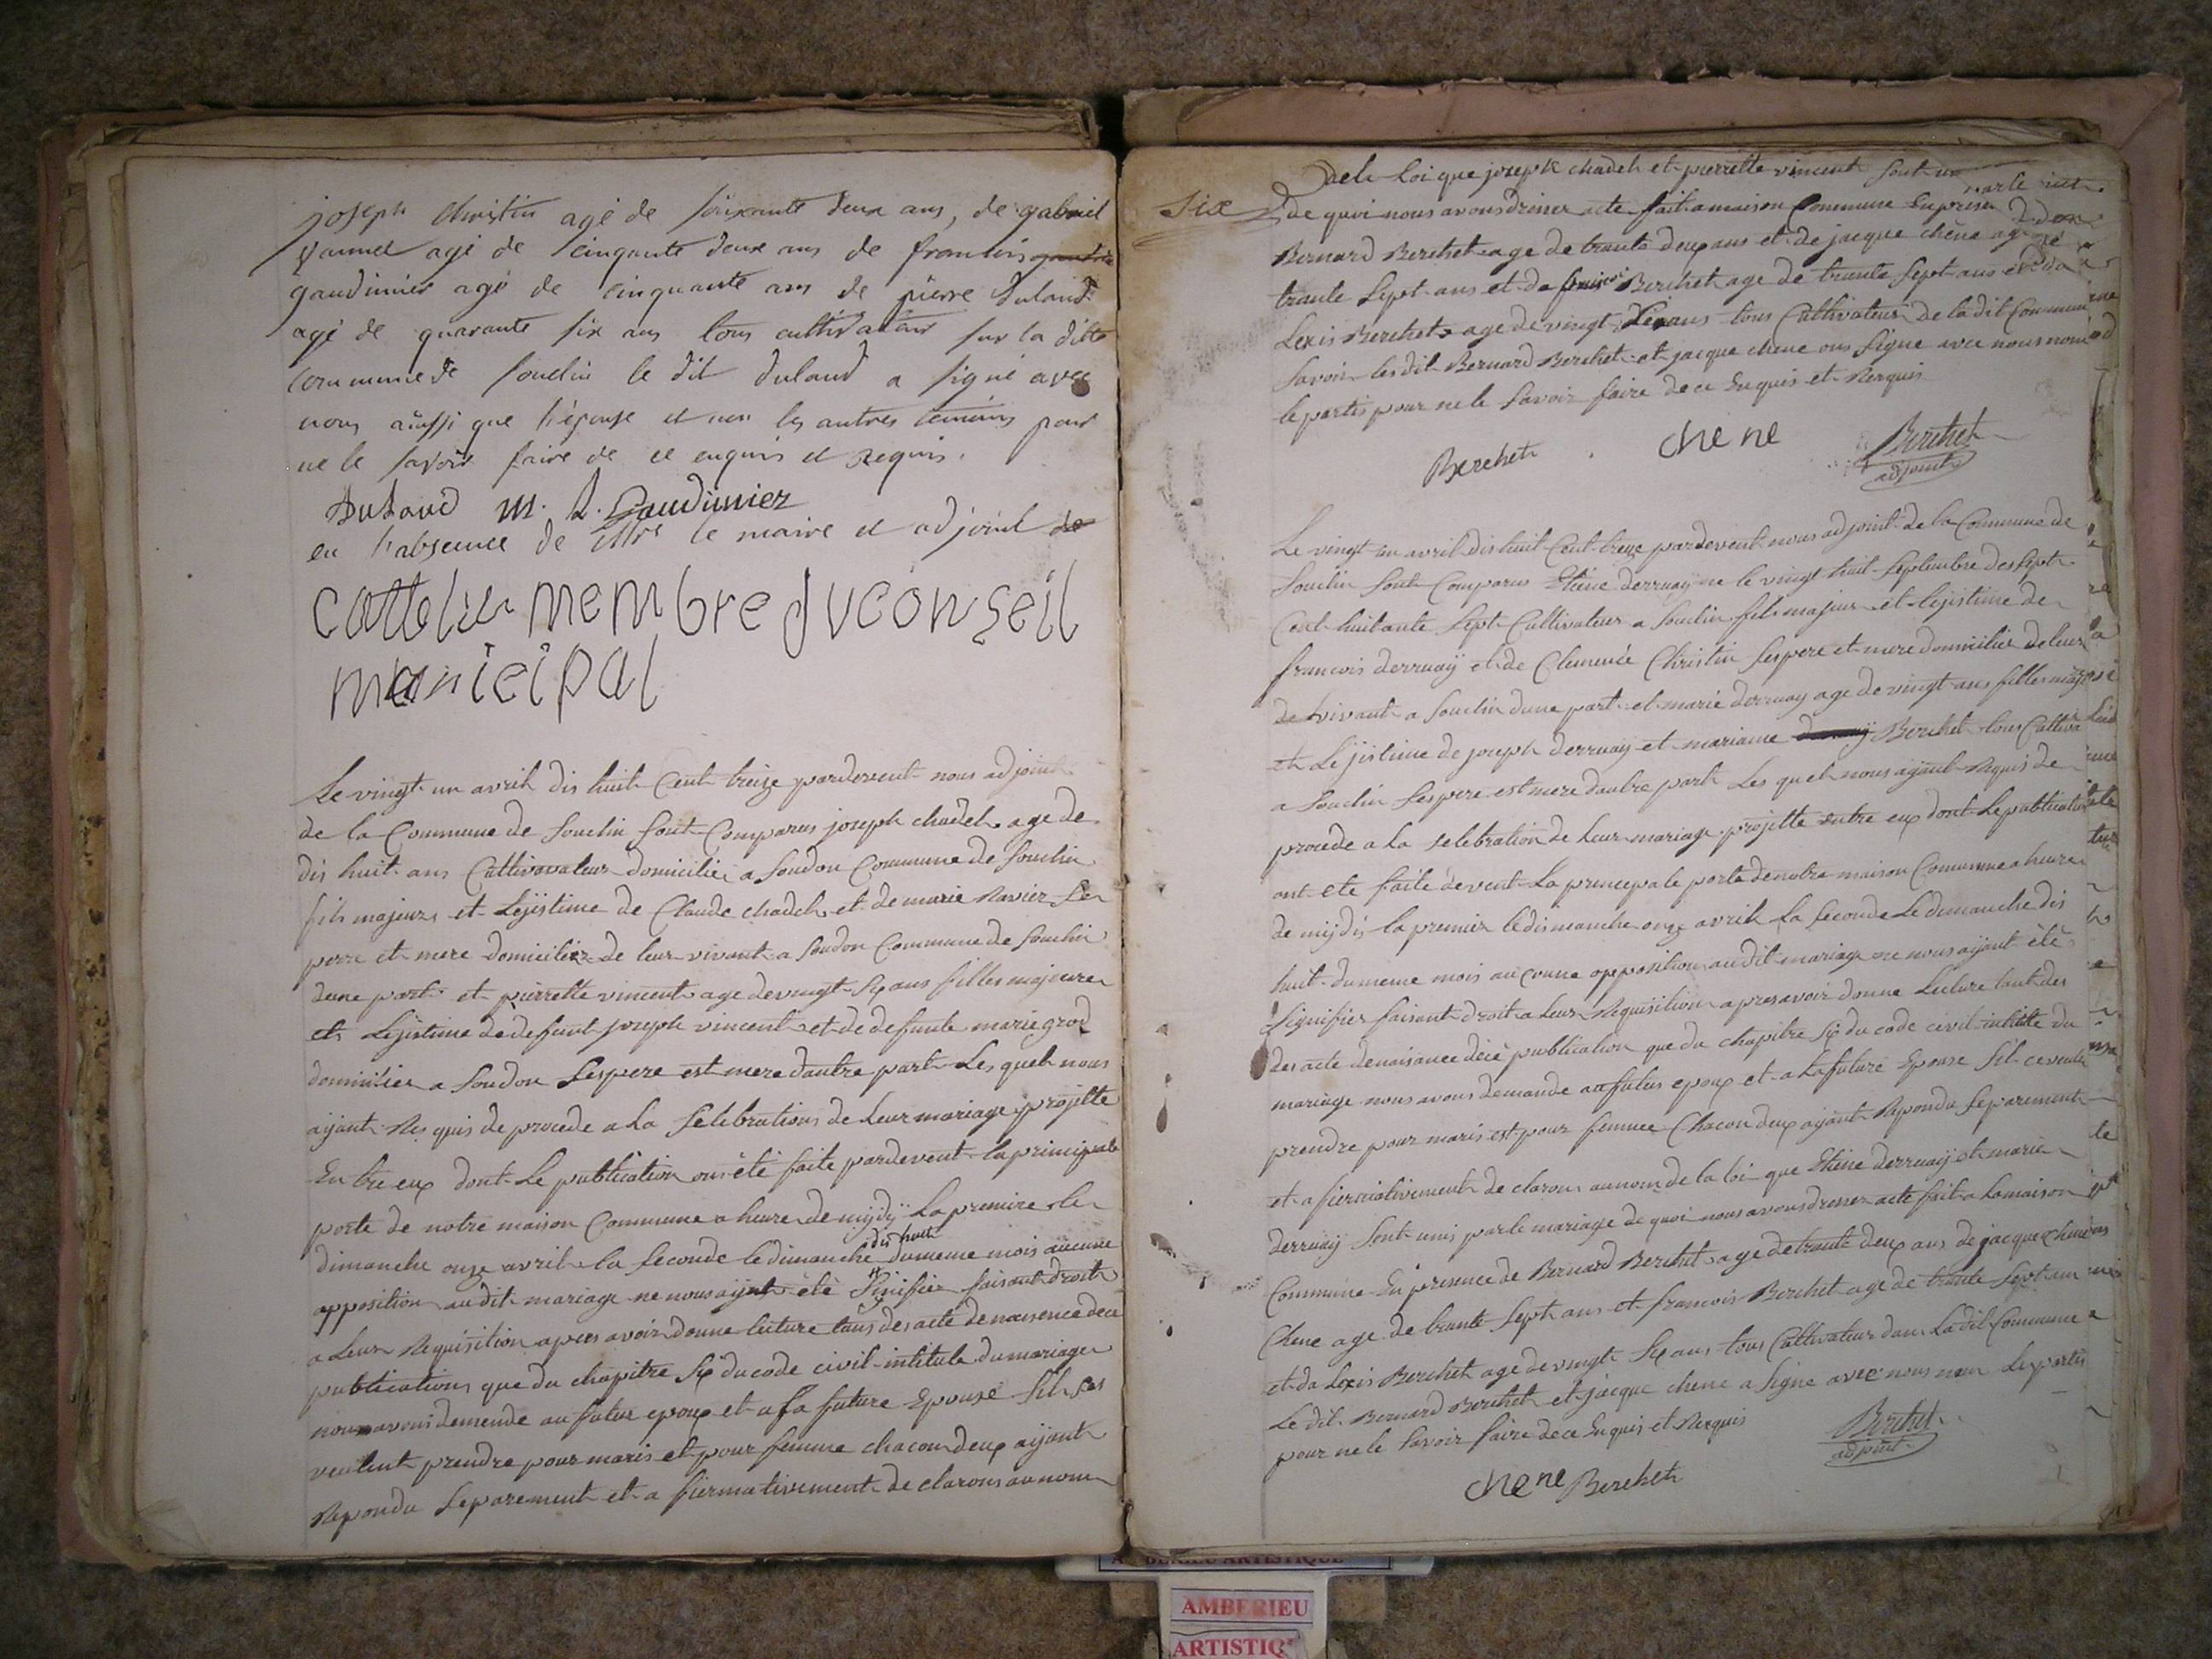 joseph Christin agé de soixante deux ans, de gabriel
agé de cinquante deux ans de francois
gaudinier agé de cinquante ans de pierre dulaud
agé de quarante six ans tous cultivateur sur la ditte
commune de souclin le dit dulaud a signé avec
nous aiussi que l'épouse et non les autres temoins pour
ne le savoir faire de ce enquis et requis.
Dulaud M. L. Gaudinier
en l'absence de Mrs le maire et adjoint de
cattelin membre du conseil
municipal
Le vingt un avril dis huit Cent treize pardevent nous adjoint
de la Commune de Souclin sont Comparus joseph chadel age de
dis huit ans Cultivavateur domicilié a Soudon Commune de Souclin
fils majeurs et Lejistime de Claude chadel et de marie Ravier Ses
perre et mere domicilier de leur vivant a Soudon Commune de Souclin
dune part et pierrette vincent age de vingt Six ans filles majeure
et Lejistime de defunt joseph vincent et de defunte marie groz
domicilier a Soudon Sespere est mere dautre part Les quel nous
aÿant Requis de procede a La Selebrations de Leur mariage projette
Entre eux dont Le publication ons été faite pardevent la principale
porte de notre maison Commune a heure de mijdÿ La premire le
dimanche onze avril la seconde le dimanche dis huit dumeme mois aucune
opposition au dit mariage ne nous aÿant été Sinifié faisant droit
a Leur Requisition apres avoir donne lecture tans des acte de naisence dece
publications que du chapitre Six du code civil intitule du mariage
nous avons demende au futur epoux et a la future Epouse Sil Ses
veulent prendre pour maris et pour femme chacon deux aÿant
Repondu Separement et a fiermativement de clarons au nom
Six
dela Loi que joseph chadel et pierrette vincent sont
de quoi nous avons dresser acte fait a maison Commune En presen
Bernard Berchet age de trante deux ans et de jacque chêne age
trante Sept ans et de Berchet age de trante Sept ans et da
Lexis Berchet age de vingt Sixans tous Cultivateur de la dit Commune
Savoir les dit Bernard Berchet et jacque chene ons Signe avec nous nom
le partis pour ne le Savoir faire de ce Enquis et Requis
Berchet chene Berthet
adjoint
Le vingt un avril dis huit Cent treize pardevent nous adjoint de la Commune de
Souclin sont Comparus Etiène derruaÿ ne le vingt huit Septembre des Sept
Cent huitante Sept Cultivateur a Souclin fils majeur et lejistime de
francois derruaÿ et de Clemence Christin Ses pere et mere domicilie de leur
de vivant a Souclin dune part et marie derruay age de vingt ans filles maje
et Lejistime de joseph derruaÿ et mariane Berchet tous Cultiva
a Souclin Ses pere est mere dautre part Les quel nous aÿant Requis de
procede a La selebration de Leur mariage projette entre eux dont Le publication
ont ete faite devent La princepale porte de notre maison Commune a heure
de mijdÿ la premier le dismanche onze avril La Seconde Le dimanche dis
huit du meme mois aucoune opposition au dit mariage ne nous aÿant été
Signifier faisant droit a Leur Requisition apres avoir donne Lecture tant des
des acte denaisance dece publication que du chapitre Six du code civil intitle du
mariage nous avons demande au futur epoux et a La future Epouse Sil ce veule
prendre pour maris est pour femme Chacon deux aÿant Repondu Separement
et a fiermativement de clarons au nom de la loi que Etiene derruaÿ et marie
derruaÿ Sont unis par le mariage de quoi nous avons dresser acte fait a La maison
Commune En presence de Bernard Berchet age de trante deux ans de jacque
Chene age de trante Sept ans et francois Berchet age de trante Sept ans
et da Lexis Berchet age de vingt Six ans tous Cultivateur dans La dit Commune
Le dit Bernard Berchet et jacque chene a Signe avec nous nom Le partis
pour ne le Savoir faire de ce Enquis et Requis
Berthet
adjoint
chene Berchet
AMBERIEU ARTISTIQUE
AMBERIEU
ARTISTIQ